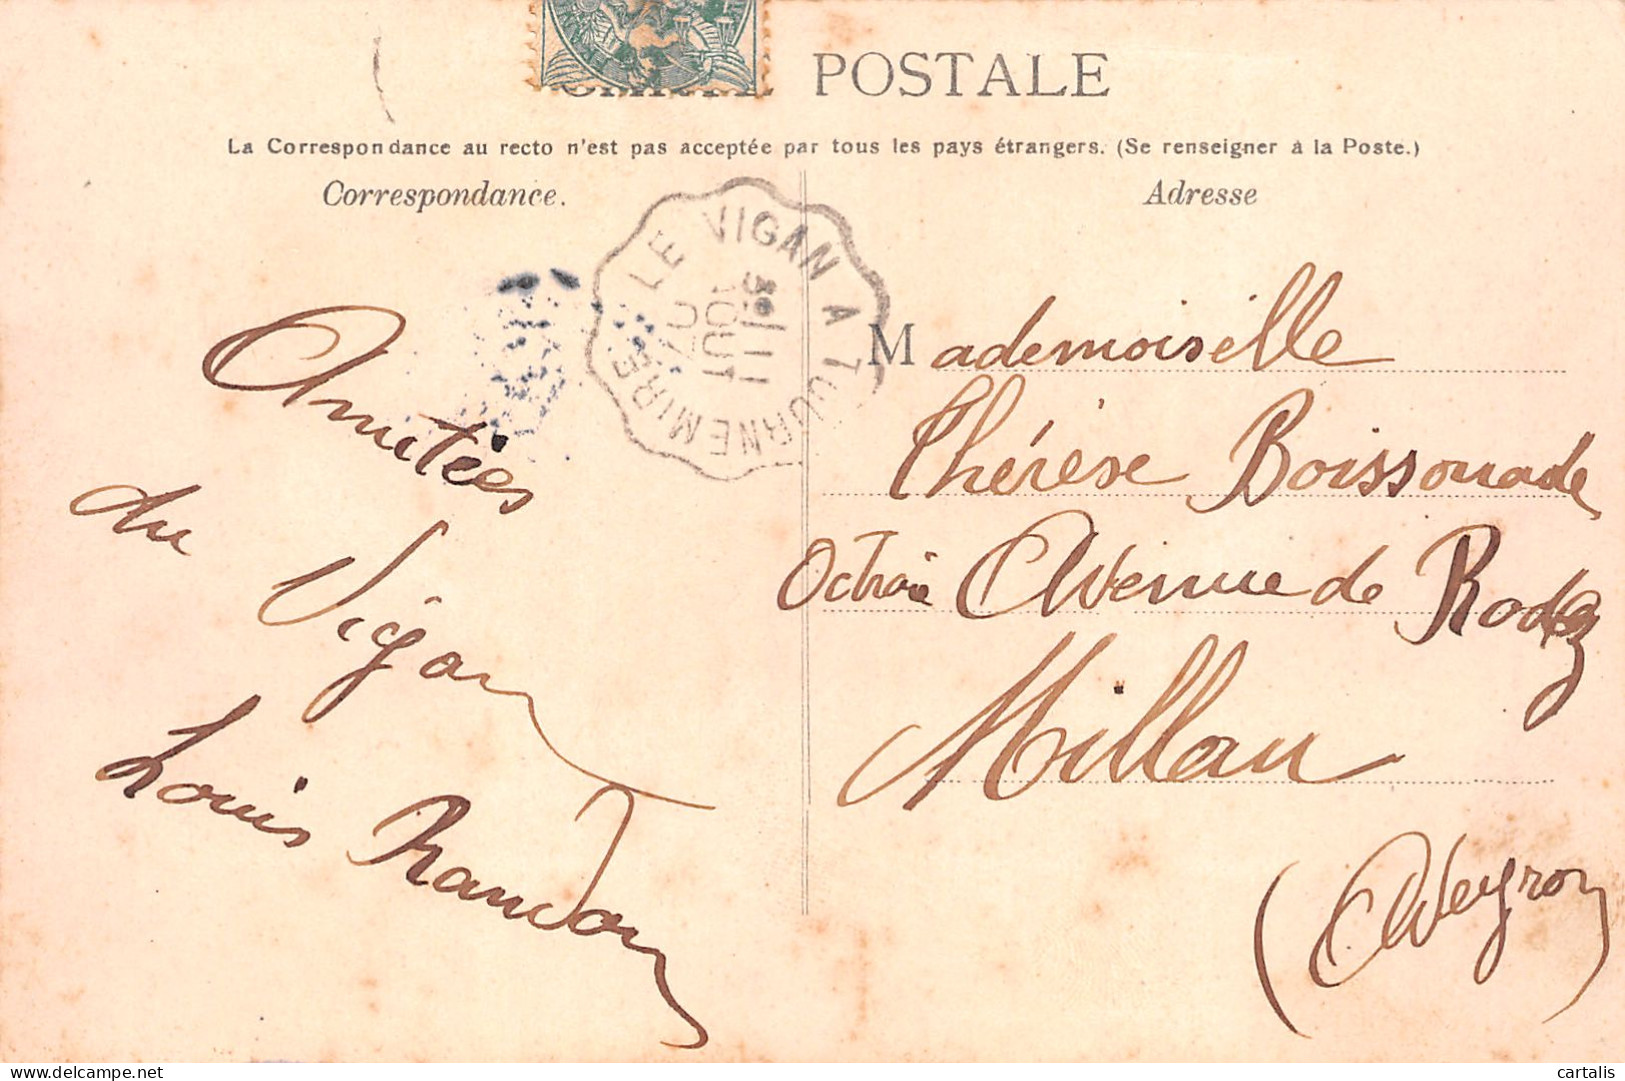 POSTALE
La Correspondance au recto n'est pas acceptée par tous les pays étrangers. (Se renseigner à la Poste.)
Correspondance.
Adresse
LE VIGAN A TOURNEMIRE
AOUT
Amitiées
du Vigan
Louis Randon
Mademoiselle
Thérèse Boissonade
Octroi Avenue de Rodez
Millau
(Aveyron)
delcampe.net
cartalis